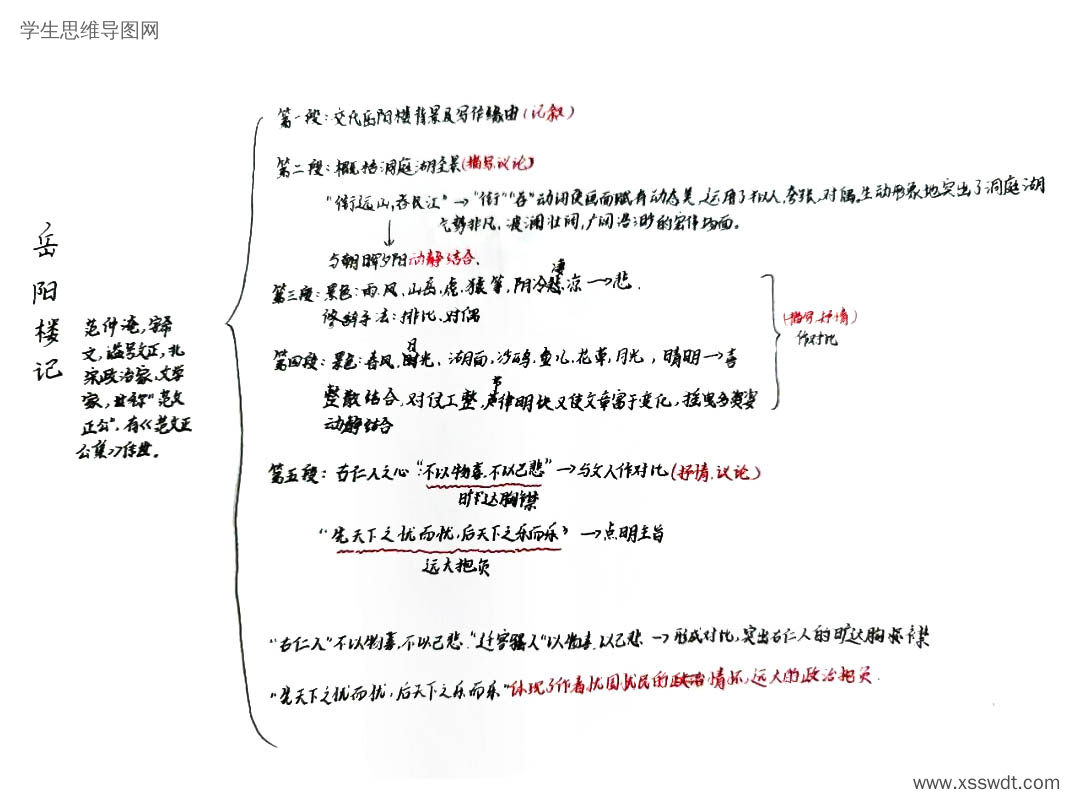 学生思维导图网
岳阳楼记
范仲淹,字希
文,谥号文正,北
宋政治家,文学
家,世称"范文
正公",有《范文正
公集》传世。
第一段:交代岳阳楼背景及写作缘由(记叙)
第二段:概括洞庭湖全景(描写,议论)
"衔远山,吞长江"→"衔""吞"动词使画面赋有动态美,运用了拟人,夸张,对偶。生动形象地突出了洞庭湖
气势非凡,波澜壮阔,广阔浩渺的宏伟场面。
与朝晖夕阴动静结合、
第三段:景色:雨,风,山岳,虎,猿等,阴冷凄凉→悲.
修辞手法:排比,对偶
(描写,抒情)
作对比
第四段:景色:春风,日光,湖面,沙鸥,鱼儿,花草,月光,晴明→喜
整散结合,对仗工整,节律明快又使文章富于变化,摇曳多姿
动静结合
第五段:古仁人之心"不以物喜,不以己悲"→与文人作对比(抒情,议论)
旷达胸襟
"先天下之忧而忧,后天下之乐而乐"→点明主旨
远大抱负
"古仁人"不以物喜,不以己悲."迁客骚人"以物喜,以己悲→形成对比,突出古仁人的旷达胸怀
"先天下之忧而忧,后天下之乐而乐"体现了作者忧国忧民的政治情怀,远大的政治抱负.
www.xsswdt.com